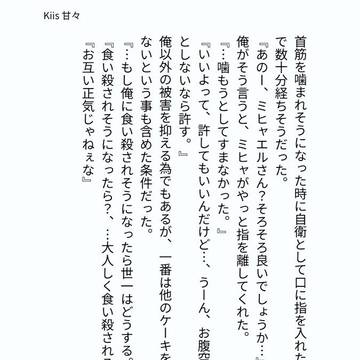 Kiis 甘々
首筋を噛まれそうになった時に自衛として口に指を入れた
で数十分経ちそうだった。
『あのー、ミヒャエルさん?そろそろ良いでしょうか…』
俺がそう言うと、ミヒャがやっと指を離してくれた。
『…噛もうとしてすまなかった。』
『いいよって、許してもいいんだけど…、うーん、お腹空
としないなら許す。』
俺以外の被害を抑える為でもあるが、一番は他のケーキを
ないという事も含めた条件だった。
『…もし俺に食い殺されそうになったら世一はどうする。
『食い殺されそうになったら?、…大人しく食い殺される
『お互い正気じゃねぇな』